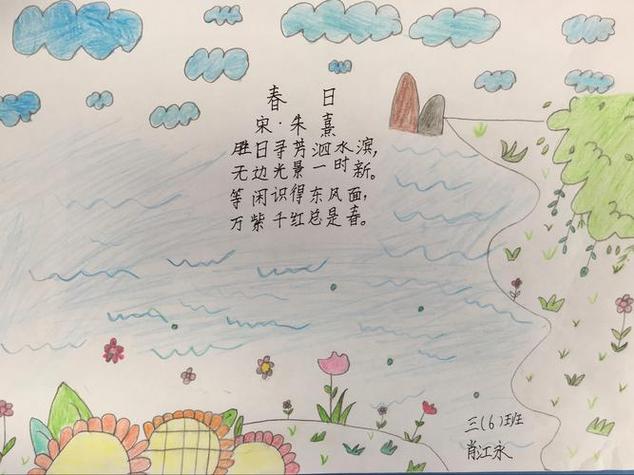 春日
宋·朱熹
胜日寻芳泗水滨，
无边光景一时新。
等闲识得东风面，
万紫千红总是春。
三（6）班
肖江永